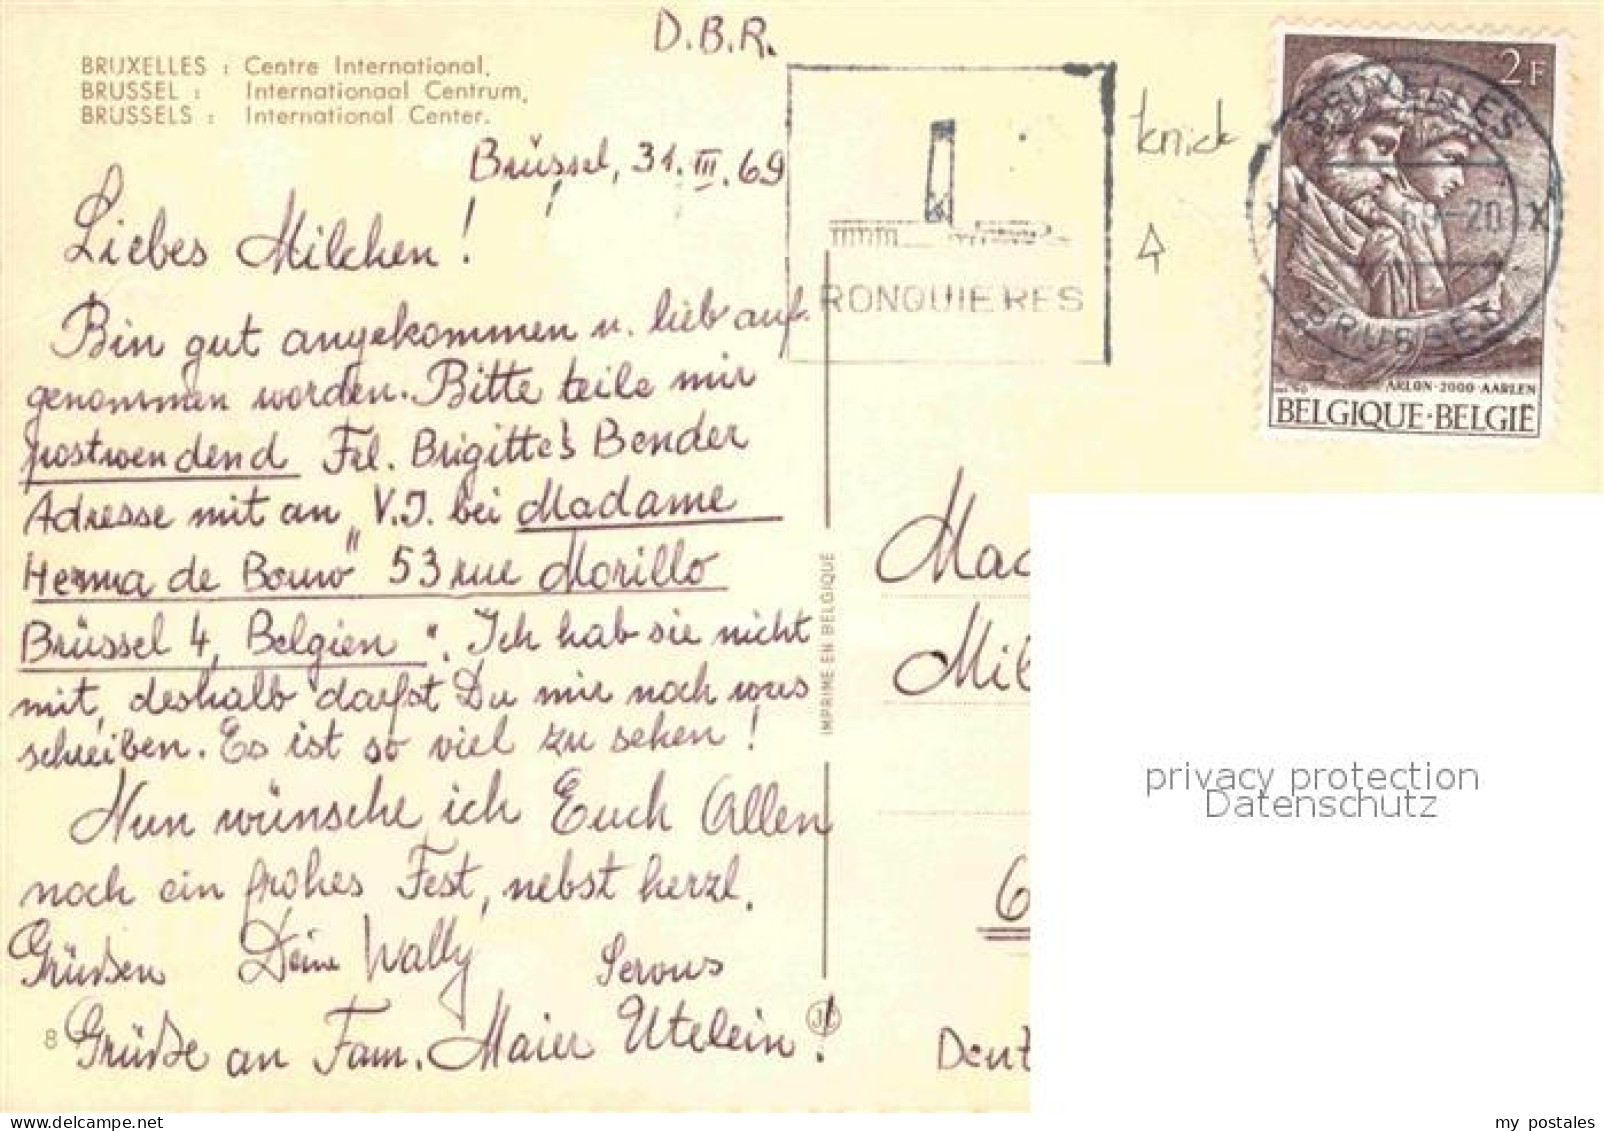 D.B.R.
BRUXELLES : Centre International.
BRUSSEL : Internationaal Centrum.
BRUSSELS : International Center.
Brüssel, 31. III. 69
Liebes Milchen!
Bin gut angekommen u. lieb auf-
genommen worden. Bitte teile mir
postwendend Frl. Brigitte's Bender
Adresse mit an „V.J. bei Madame
Herma de Bouw" 53 rue Morillo
Brüssel 4, Belgien". Ich hab sie nicht
mit, deshalb darfst Du mir noch was
schreiben. Es ist so viel zu sehen!
Nun wünsche ich Euch Allen
noch ein frohes Fest, nebst herzl.
Grüßen Deine Wally Servus
Grüße an Fam. Maier Utelein!
8
JL
IMPRIME EN BELGIQUE
RONQUIERES
knick
2F
BRUXELLES
X 69-20 X
BRUSSEL
ARLON·2000·AARLEN
BELGIQUE·BELGIË
Mad
Mil
6
Deut
privacy protection
Datenschutz
my postales